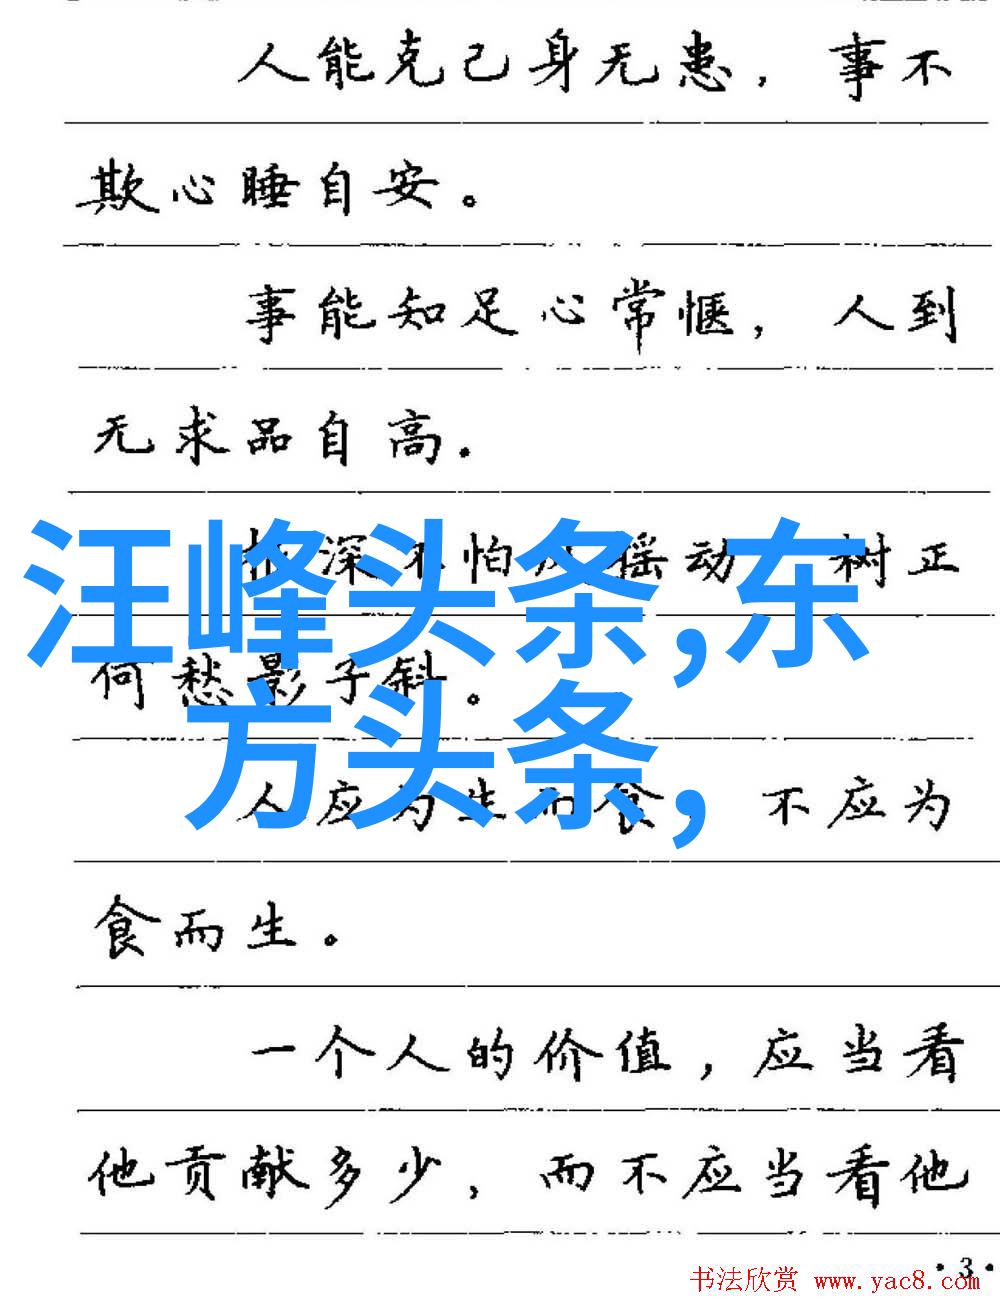 人能克己身无患，事不
欺心睡自安。
事能知足心常惬，人到
无求品自高.
深不怕 摇动 树正
汪峰头条,东
何愁影子斜。
方头条,
人应为生而食 不应为
食而生。
一个人的价值，应当看
他贡献多少，而不应当看他
·3·
书法欣赏 www.yac8.com